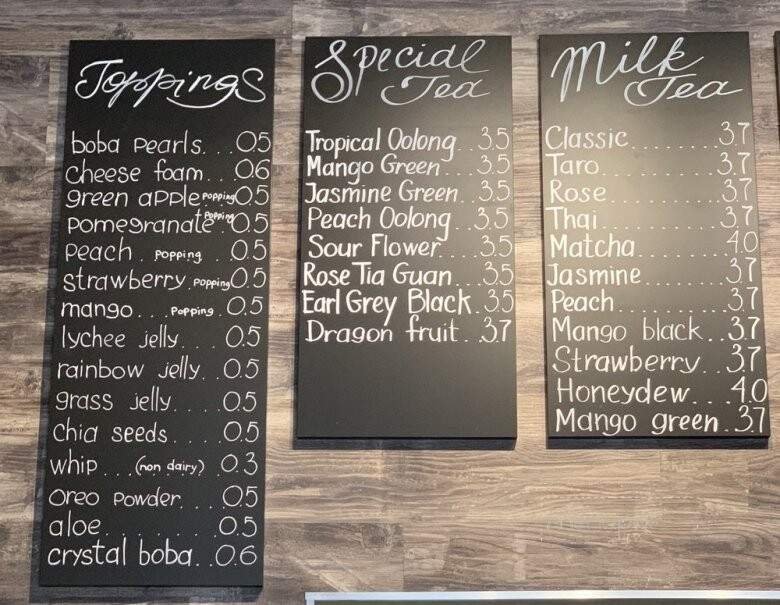 Toppings
boba pearls...0.5
cheese foam...0.6
green apple popping 0.5
pomegranate popping 0.5
peach popping...0.5
strawberry popping 0.5
mango...popping.0.5
lychee jelly...0.5
rainbow jelly..0.5
grass jelly....0.5
chia seeds....0.5
whip...(non dairy) 0.3
oreo powder...0.5
aloe.......0.5
crystal boba..0.6
Special
Tea
Tropical Oolong...3.5
Mango Green...3.5
Jasmine Green..3.5
Peach Oolong...3.5
Sour Flower....3.5
Rose Tia Guan...3.5
Earl Grey Black.3.5
Dragon fruit..3.7
Milk
Tea
Classic........3.7
Taro..........3.7
Rose..........3.7
Thai..........3.7
Matcha.......4.0
Jasmine.......3.7
Peach........3.7
Mango black..3.7
Strawberry...3.7
Honeydew...4.0
Mango green.3.7